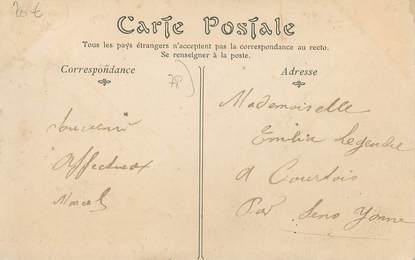 20 €
Carte Postale
Tous les pays étrangers n'acceptent pas la correspondance au recto.
Se renseigner à la poste.
Correspondance
Adresse
78
Mademoiselle
Souvenir
Emilia Legendre
Affectueux
a Courtois
Marcel
Par Sens Yonne